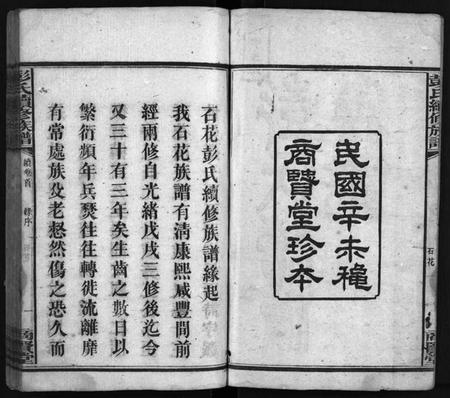 彭氏續修族譜
石花
商賢堂
民國辛未穐
商賢堂珍本
石花彭氏續修族譜緣起
我石花族譜有淸康熙咸豐間前
經兩修自光緒戊戌三修後迄今
又三十有三年矣生齒之數日以
繁衍頻年兵燹往往轉徙流離靡
有常處族父老惄然傷之恐久而
彭氏續修族譜
續卷首
緣序
一
商賢堂